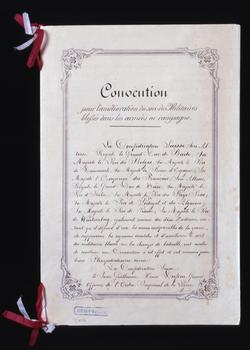 Convention
pour l'amélioration du sort des Militaires
blessés dans les armées en campagne.
La Confédération Suisse, Son Al-
tesse Royale le Grand-Duc de Bade, Sa
Majesté le Roi des Belges, Sa Majesté le Roi
de Danemark, Sa Majesté la Reine d'Espagne, Sa
Majesté l'Empereur des Français, Son Altesse
Royale le Grand-Duc de Hesse, Sa Majesté le
Roi d'Italie, Sa Majesté le Roi des Pays-Bas,
Sa Majesté le Roi de Portugal et des Algarves,
Sa Majesté le Roi de Prusse, Sa Majesté le Roi
de Wurtemberg, également animés du désir d'adoucir, au-
tant qu'il dépend d'eux, les maux inséparables de la guerre,
de supprimer les rigueurs inutiles et d'améliorer le sort
des militaires blessés sur les champs de bataille, ont résolu
de conclure une Convention à cet effet et ont nommé pour
leurs Plénipotentiaires, savoir:
La Confédération Suisse
le Sieur Guillaume Henri Dufour, Grand
Officier de l'Ordre Impérial de la